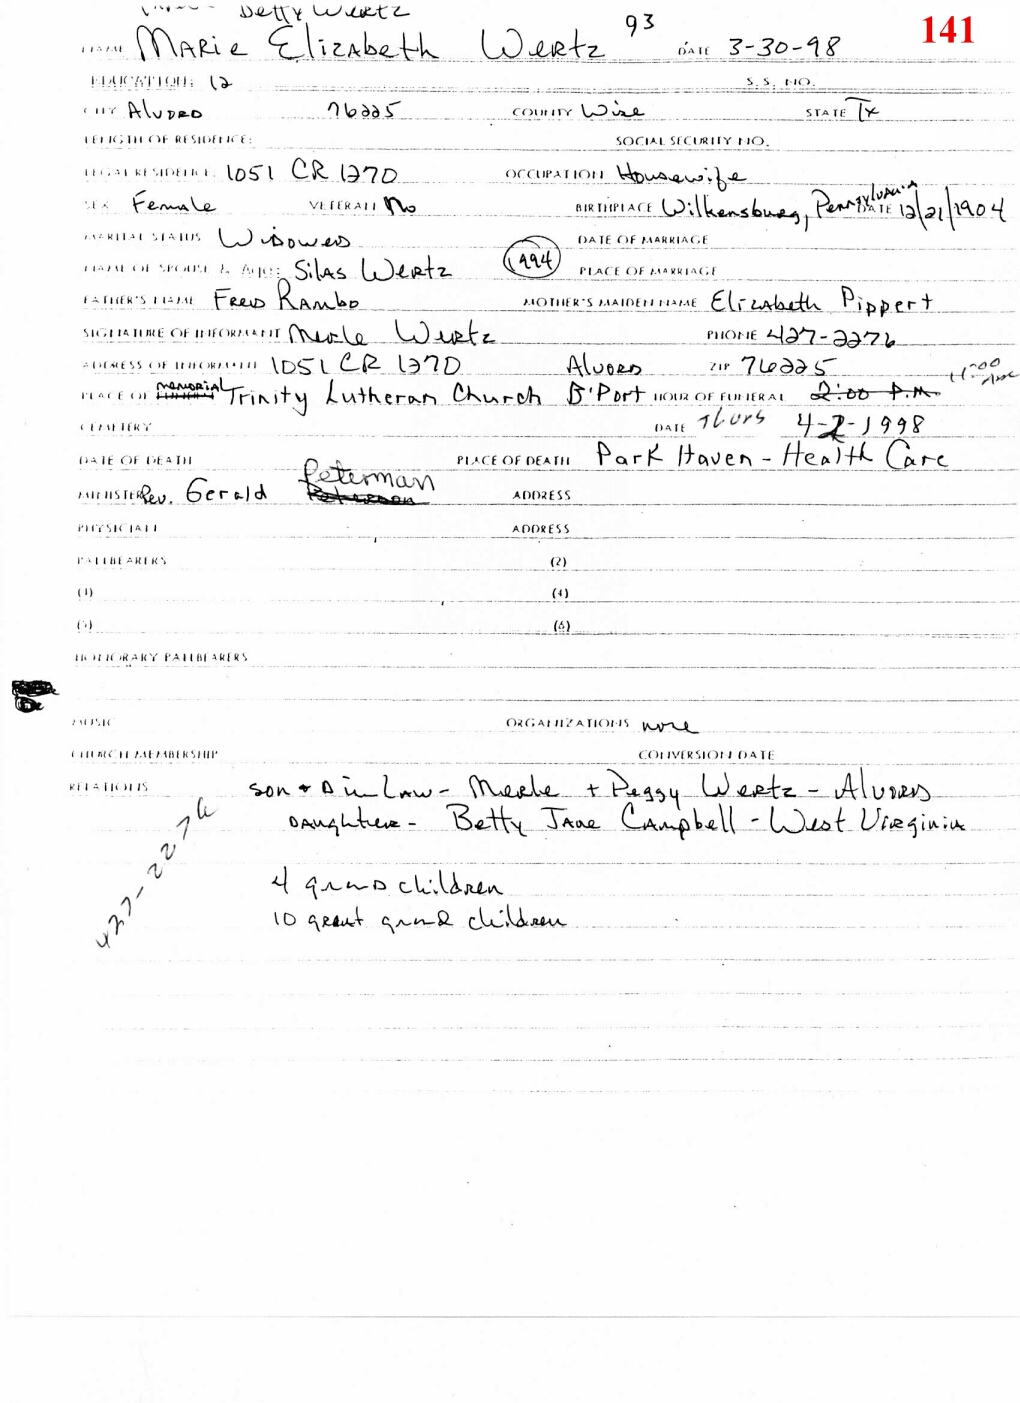 Betty Wertz
141
NAME Marie Elizabeth Wertz 93 DATE 3-30-98
EDUCATION: 12 S.S. NO.
CITY Alvord 76225 COUNTY Wise STATE Tx
LENGTH OF RESIDENCE: SOCIAL SECURITY NO.
LEGAL RESIDENCE 1051 CR 1270 OCCUPATION Housewife
SEX Female VETERAN No BIRTHPLACE Wilkensburg, Pennsylvania DATE 12/21/1904
MARITAL STATUS Widowed DATE OF MARRIAGE
NAME OF SPOUSE & Age: Silas Wertz 1994 PLACE OF MARRIAGE
FATHER'S NAME Fred Rambo MOTHER'S MAIDEN NAME Elizabeth Pippert
SIGNATURE OF INFORMANT Merle Wertz PHONE 427-2276
ADDRESS OF INFORMANT 1051 CR 1270 Alvord ZIP 76225 11:00
PLACE OF MEMORIAL Trinity Lutheran Church B'Port HOUR OF FUNERAL 2:00 P.M.
CEMETERY DATE Thurs 4-2-1998
DATE OF DEATH PLACE OF DEATH Park Haven - Health Care
MINISTER Rev. Gerald Peterman ADDRESS
PHYSICIAN ADDRESS
PALLBEARERS (2)
(3) (4)
(5) (6)
HONORARY PALLBEARERS
MUSIC ORGANIZATIONS none
CHURCH MEMBERSHIP CONVERSION DATE
RELATIONS Son + D in Law - Merle + Peggy Wertz - Alvord
Daughter - Betty Jane Campbell - West Virginia
427-2276
4 grand children
10 great grand children